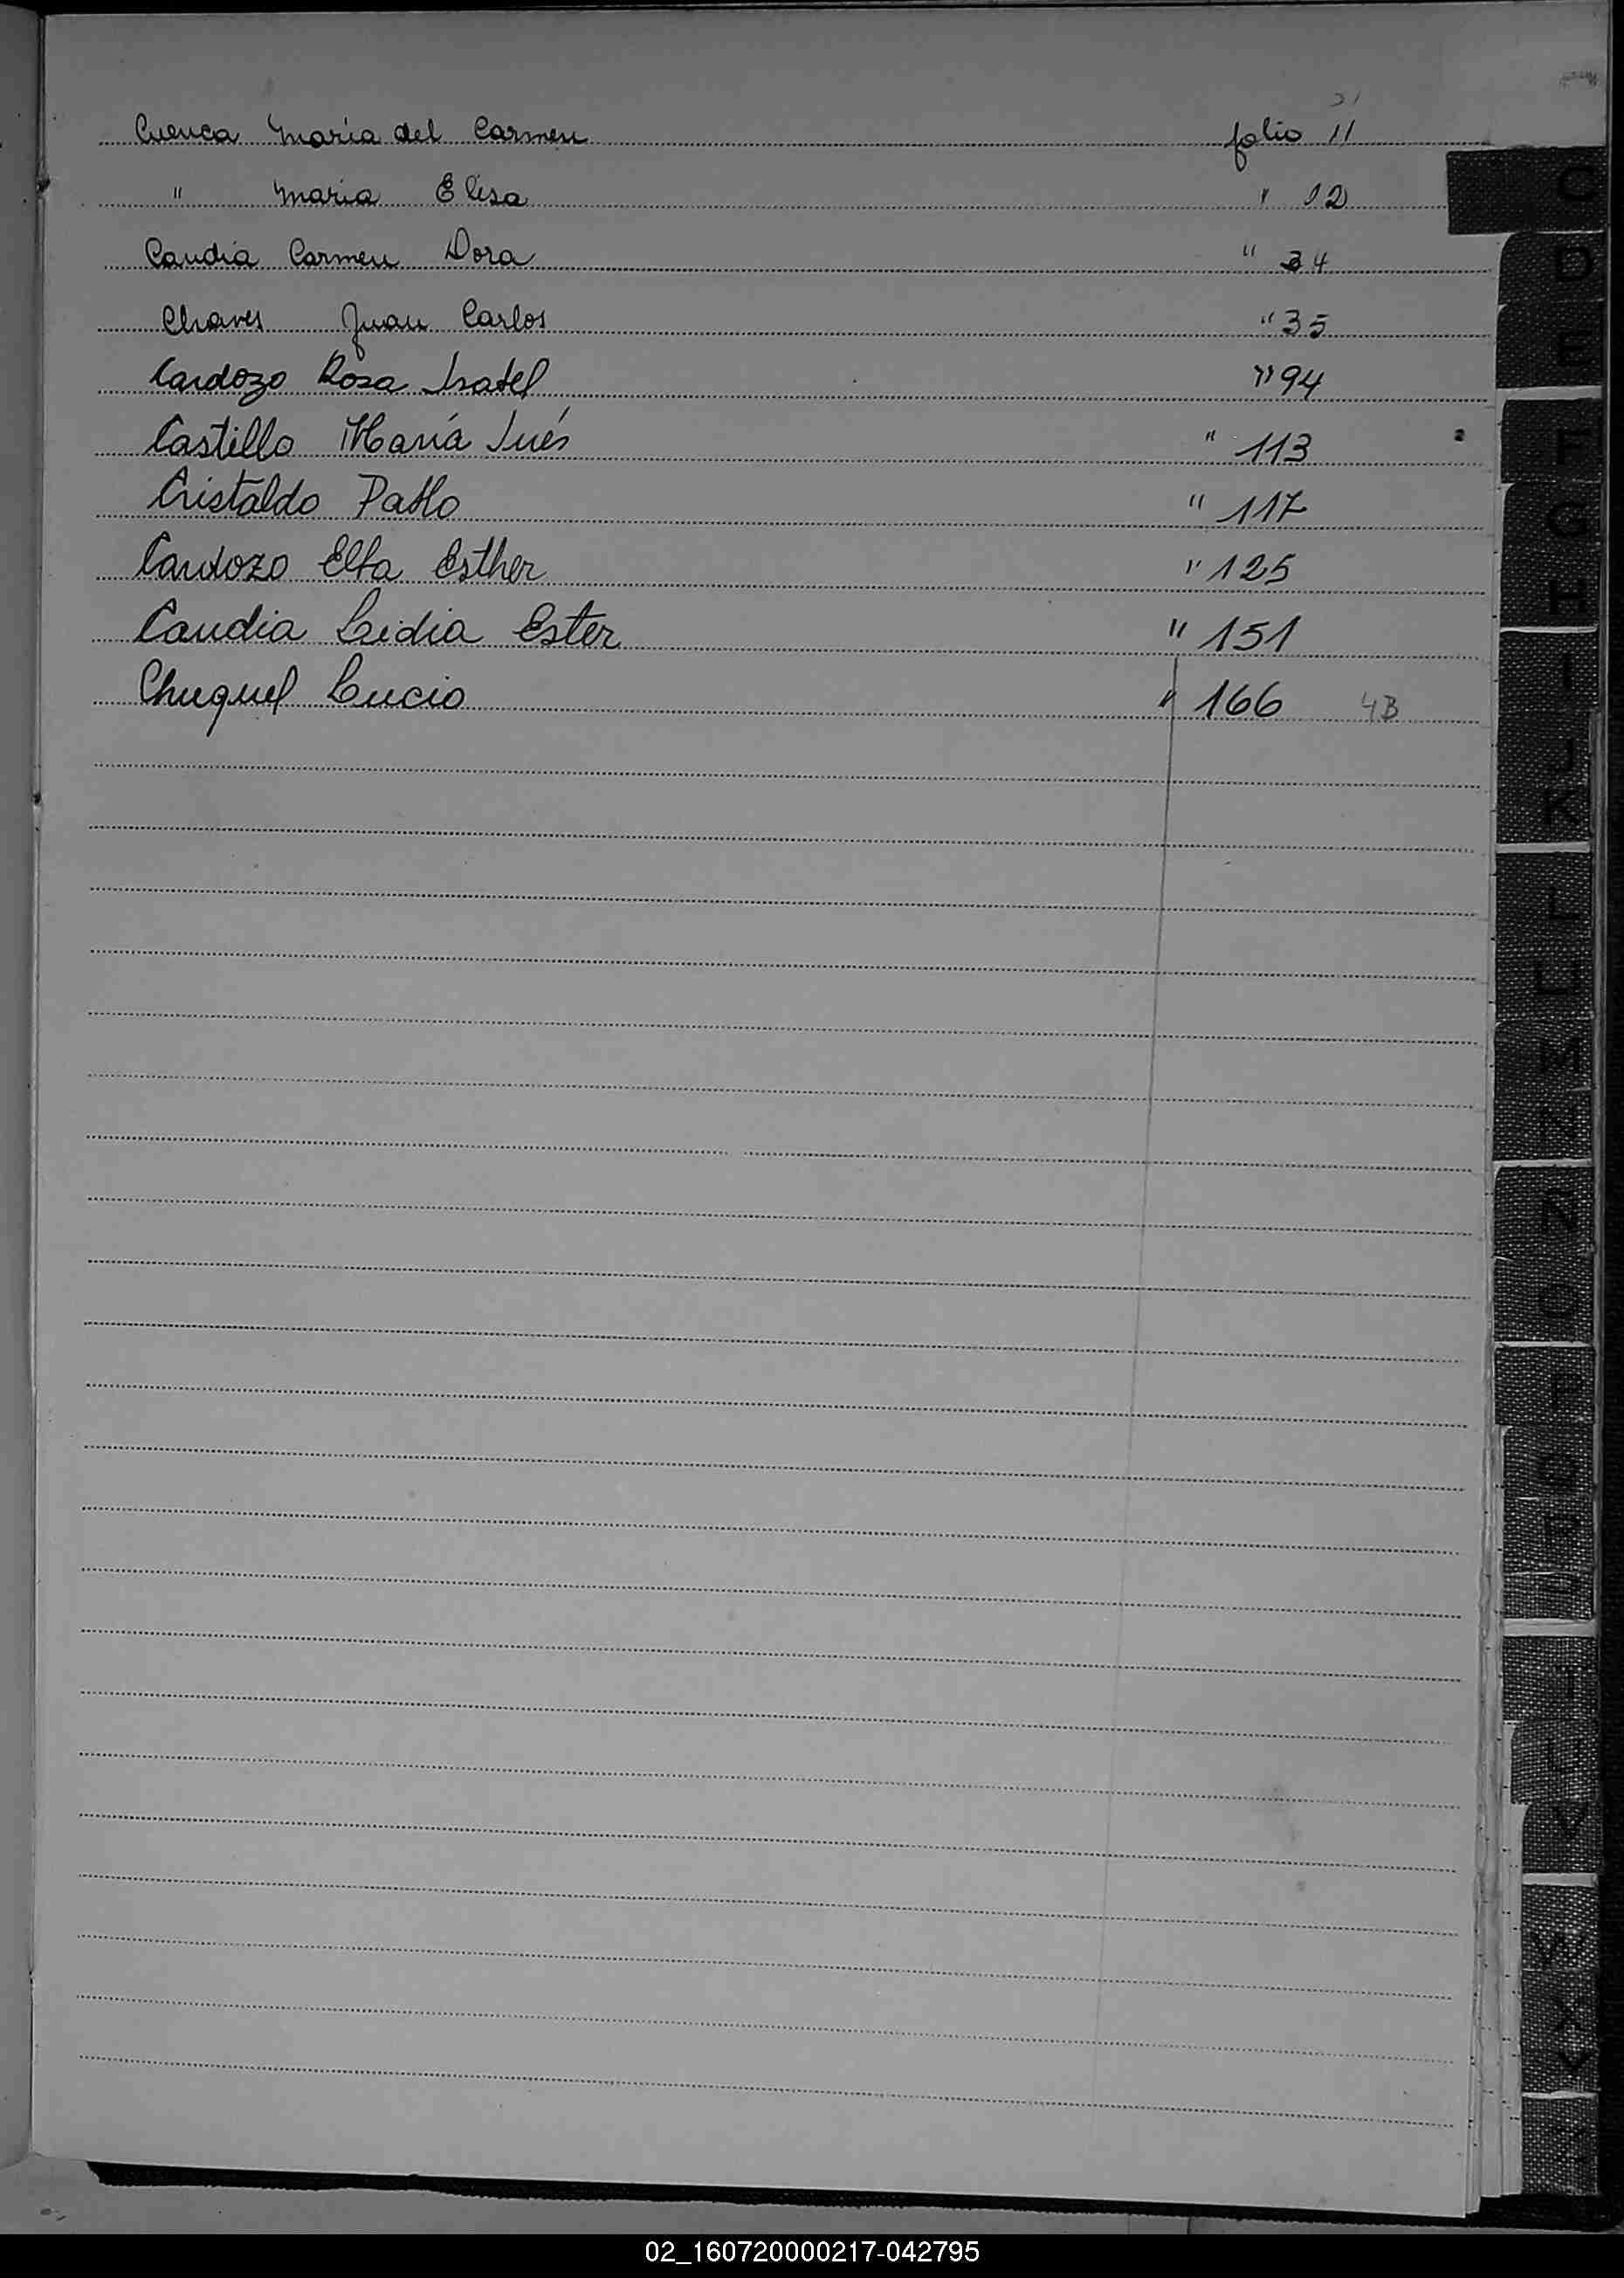 Cuenca María del Carmen folio 11
" Maria Elisa " 12
Candia Carmen Dora " 34
Chaves Juan Carlos " 35
Cardozo Rosa Isabel " 94
Castillo María Inés " 113
Cristaldo Pablo " 117
Cardozo Elba Esther " 125
Candia Leidia Ester " 151
Chuquel Lucio " 166 4B
C
D
E
F
G
H
I
J
K
L
LL
M
N
Ñ
O
P
Q
R
S
T
U
V
W
X
Y
Z
02_160720000217-042795